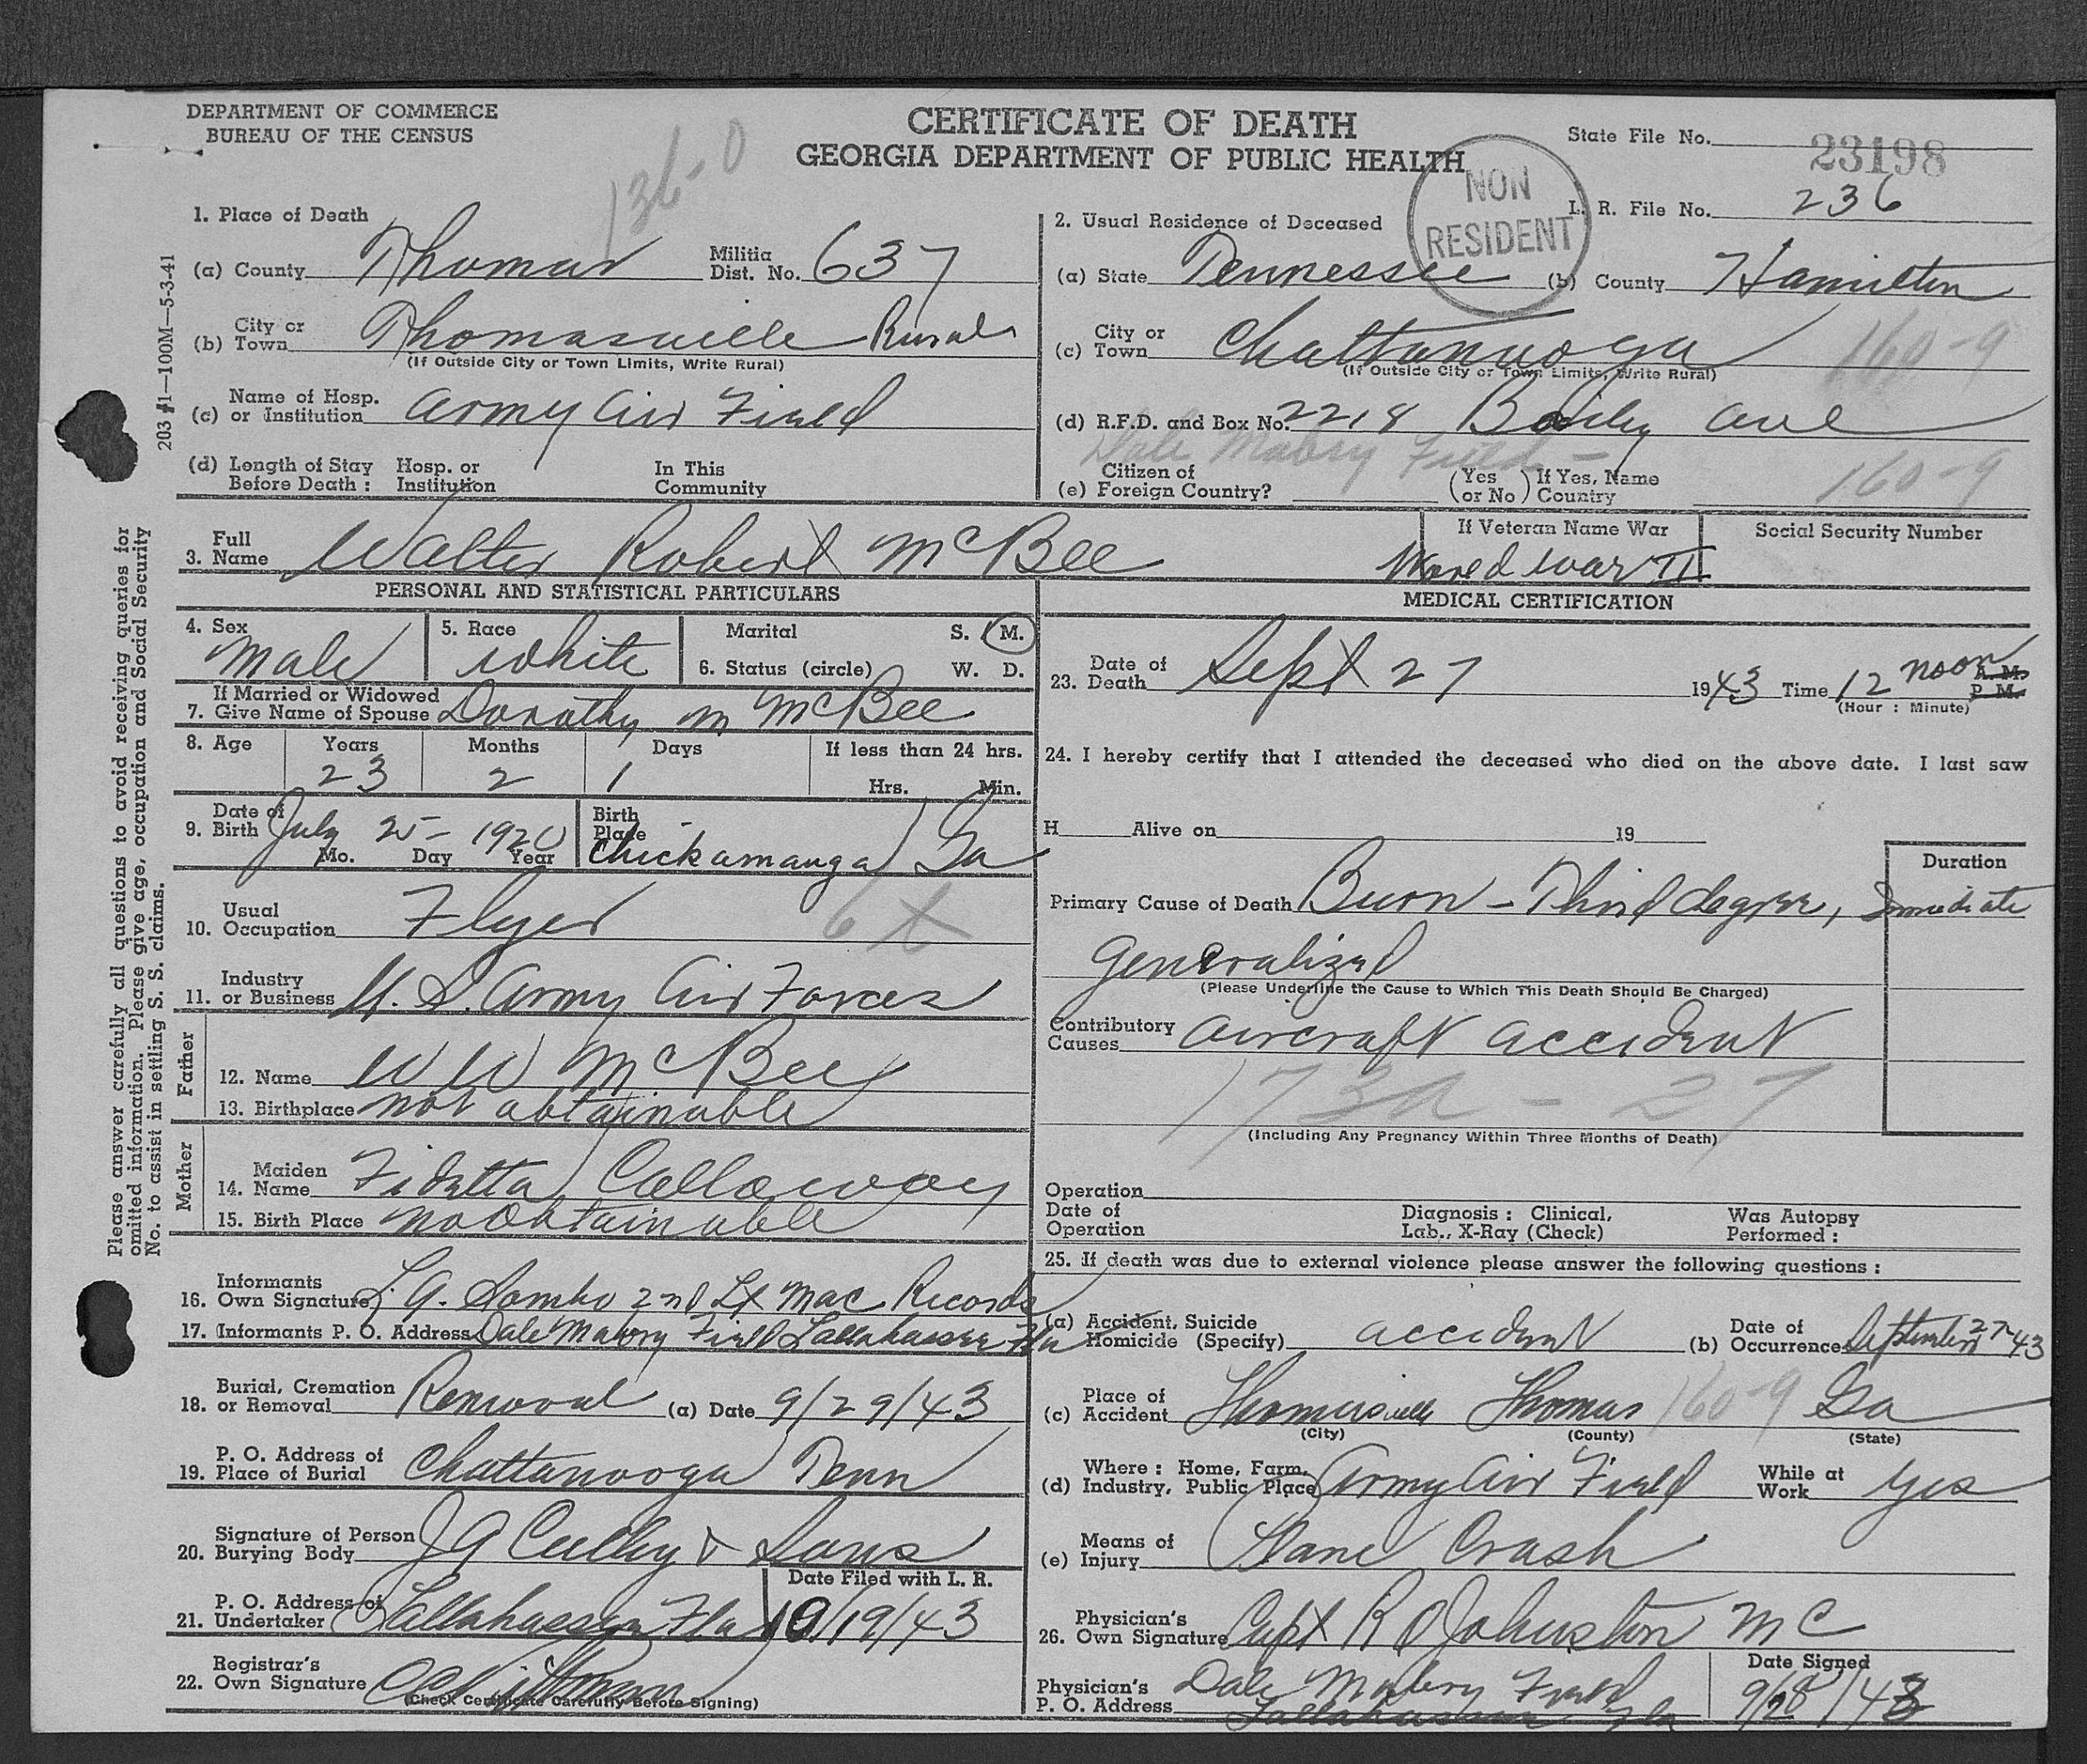 DEPARTMENT OF COMMERCE
BUREAU OF THE CENSUS
136-0
CERTIFICATE OF DEATH
GEORGIA DEPARTMENT OF PUBLIC HEALTH
NON
RESIDENT
State File No. 23198
L. R. File No. 236
203 1—100M—5-3-41
Please answer carefully all questions to avoid receiving queries for
omitted information. Please give age, occupation and Social Security
No. to assist in settling S. S. claims.
1. Place of Death
(a) County Thomas Militia Dist. No. 637
(b) City or Town Thomasville Rural
(If Outside City or Town Limits, Write Rural)
(c) Name of Hosp. or Institution Army Air Field
(d) Length of Stay Before Death : Hosp. or Institution In This Community
2. Usual Residence of Deceased
(a) State Tennessee (b) County Hamilton
(c) City or Town Chattanooga 160-9
(If Outside City or Town Limits, Write Rural)
(d) R.F.D. and Box No. 2218 Bailey Ave
Dale Mabry Field -
(e) Citizen of Foreign Country? (Yes or No) If Yes, Name Country 160-9
3. Full Name Walter Robert McBee
If Veteran Name War
World War II
Social Security Number
PERSONAL AND STATISTICAL PARTICULARS
4. Sex Male
5. Race White
6. Marital Status (circle) S. M. W. D.
7. If Married or Widowed Give Name of Spouse Dorothy M McBee
8. Age Years 23 Months 2 Days 1 If less than 24 hrs. Hrs. Min.
9. Date of Birth July 25 - 1920
Mo. Day Year
Birth Place Chickamauga Ga
10. Usual Occupation Flyer 6 X
11. Industry or Business U. S. Army Air Forces
Father
12. Name W W McBee
13. Birthplace not obtainable
Mother
14. Maiden Name Fidetta Calloway
15. Birth Place no obtainable
16. Informants Own Signature 2nd Lt Mac Records
17. Informants P. O. Address Dale Mabry Field Tallahassee Fla
18. Burial, Cremation or Removal Removal (a) Date 9/29/43
19. P. O. Address of Place of Burial Chattanooga Tenn
20. Signature of Person Burying Body J A Culley & Sons
21. P. O. Address of Undertaker Tallahassee Fla
Date Filed with L. R.
10/19/43
22. Registrar's Own Signature
(Check Certificate Carefully Before Signing)
MEDICAL CERTIFICATION
23. Date of Death Sept 27 1943 Time 12 noon A. M. P. M.
(Hour : Minute)
24. I hereby certify that I attended the deceased who died on the above date. I last saw
H Alive on 19
Duration
Primary Cause of Death Burn - Third degree, Immediate
Generalized
(Please Underline the Cause to Which This Death Should Be Charged)
Contributory Causes Aircraft accident
173a - 27
(Including Any Pregnancy Within Three Months of Death)
Operation
Date of Operation Diagnosis : Clinical, Lab., X-Ray (Check) Was Autopsy Performed :
25. If death was due to external violence please answer the following questions :
(a) Accident, Suicide Homicide (Specify) accident (b) Date of Occurrence September 27-43
(c) Place of Accident Thomasville Thomas 160-9 Ga
(City) (County) (State)
(d) Where : Home, Farm, Industry, Public Place Army Air Field While at Work yes
(e) Means of Injury Plane Crash
26. Physician's Own Signature Capt R O Johnston MC
Physician's P. O. Address Dale Mabry Field
Tallahassee Fla
Date Signed
9/28/43